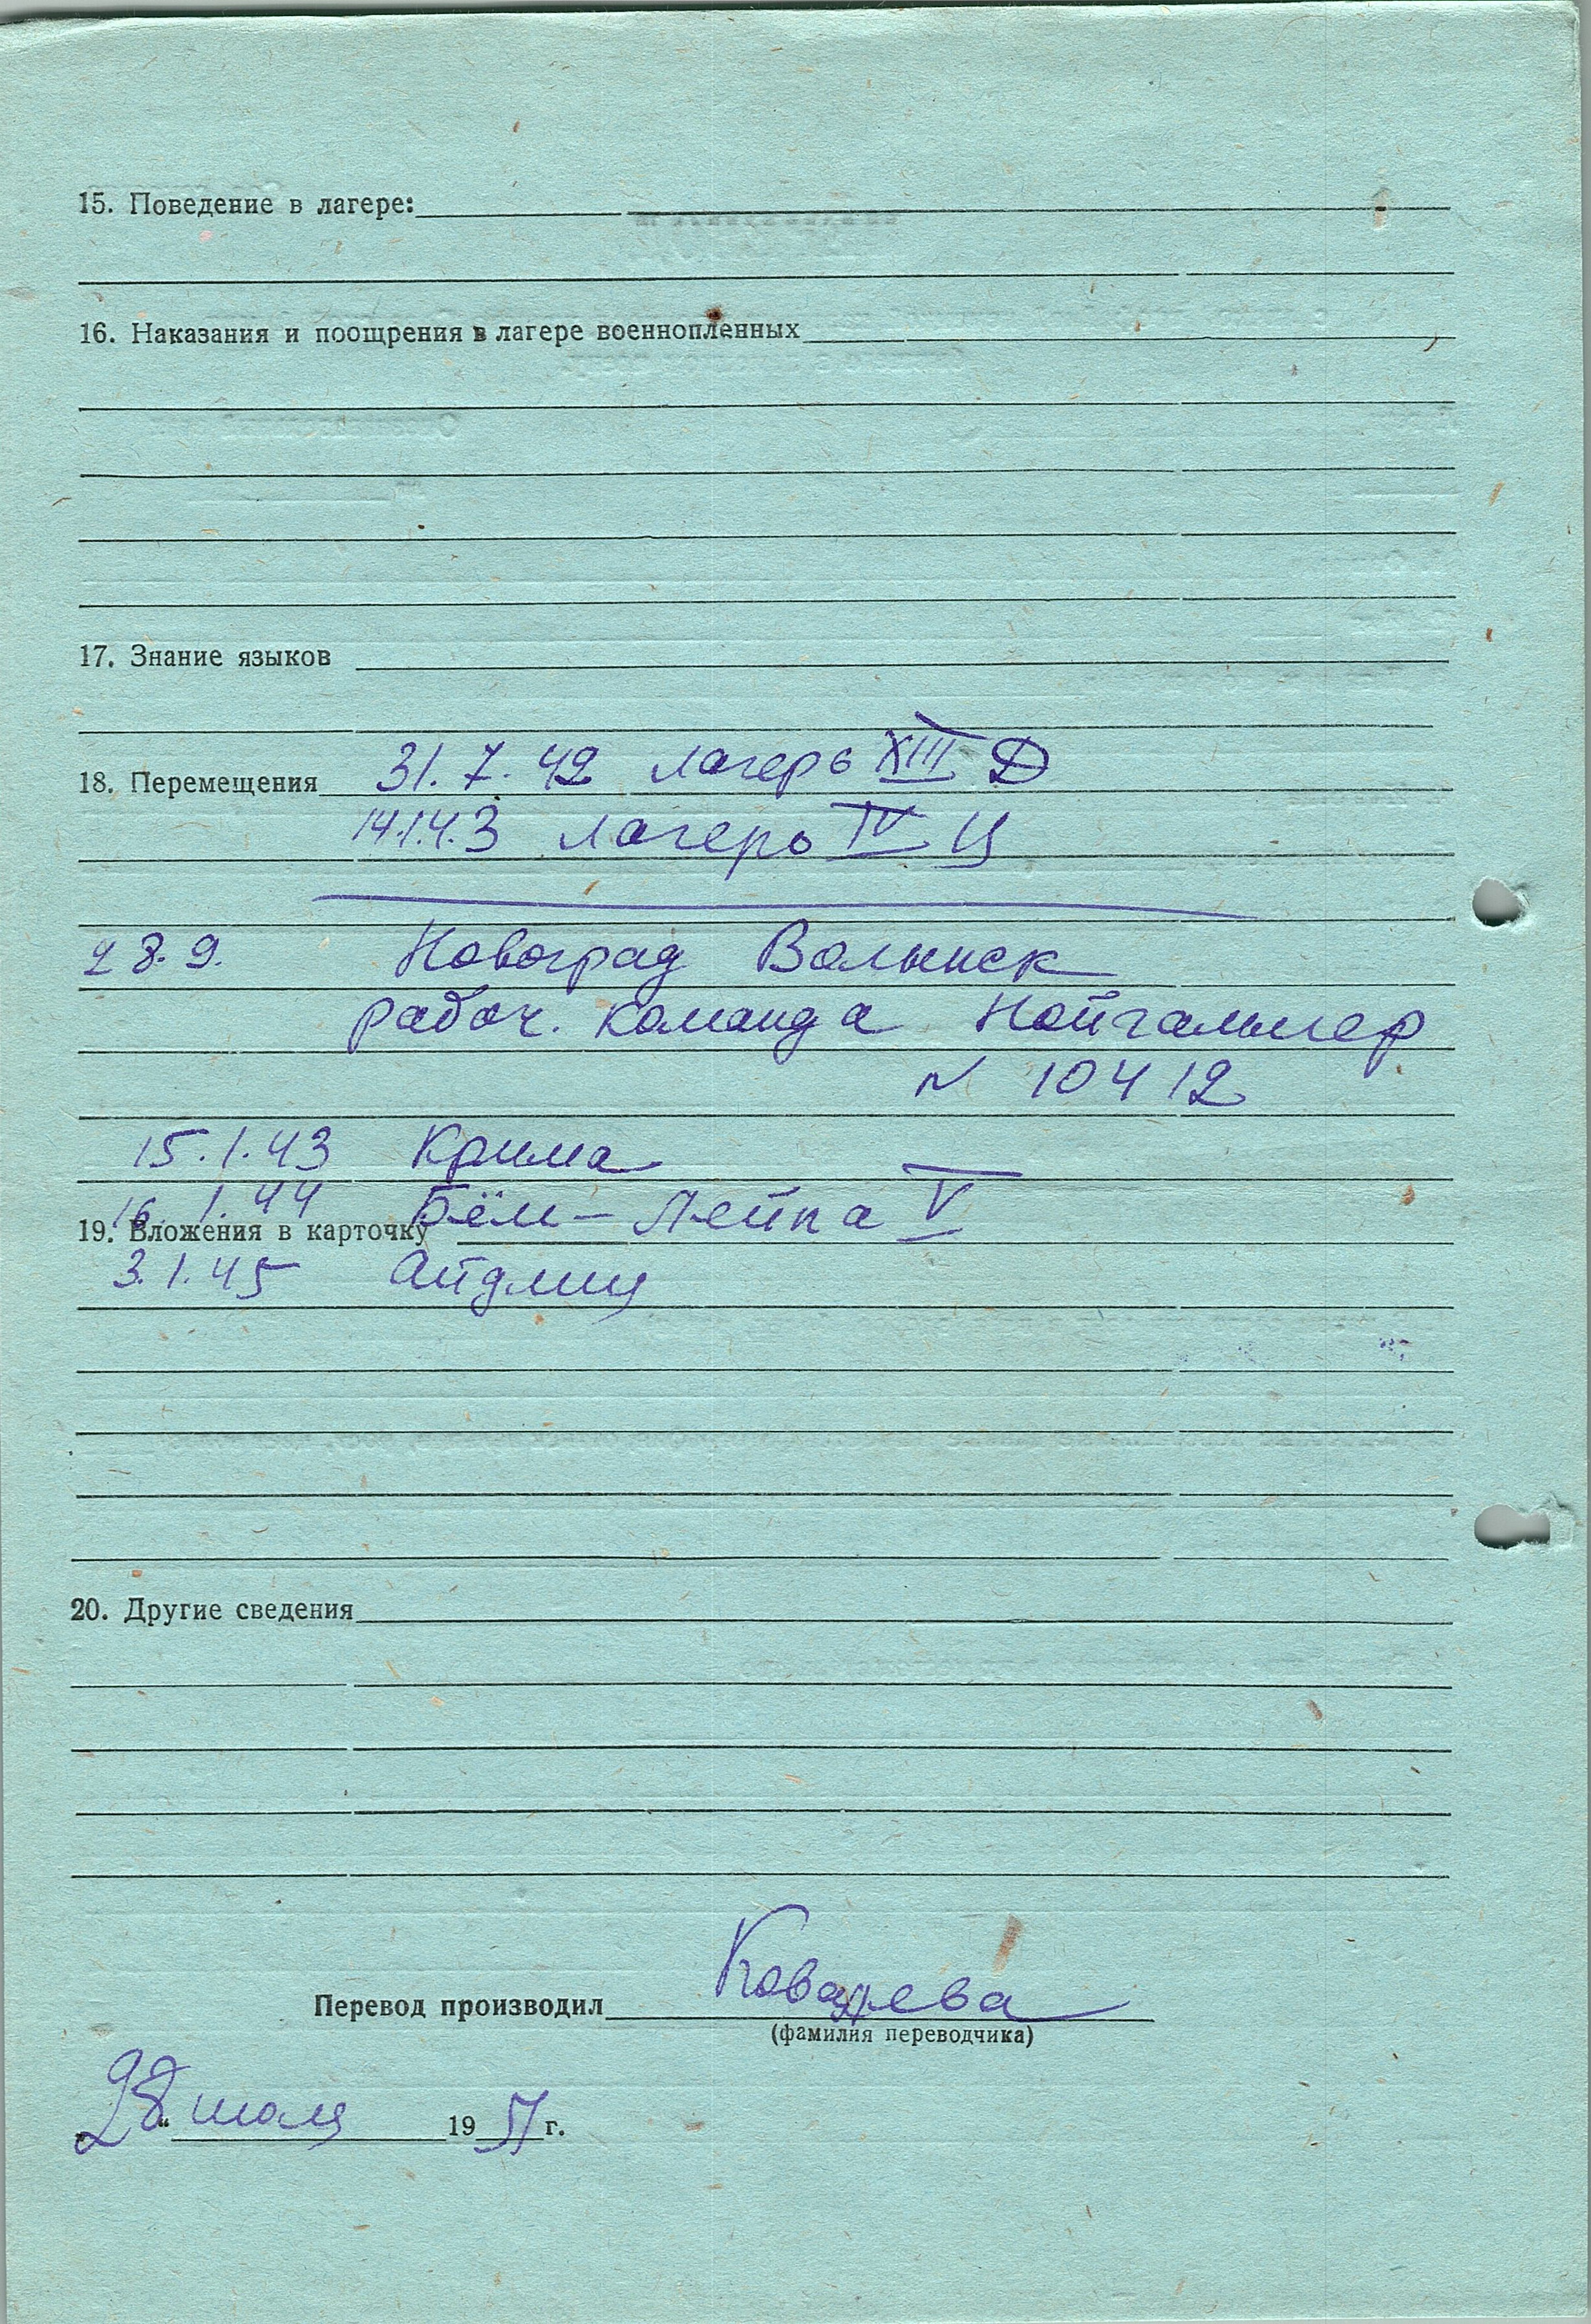 15. Поведение в лагере:
16. Наказания и поощрения в лагере военнопленных
17. Знание языков
18. Перемещения 31.7.42 лагерь XIII Д
14.1.43 лагерь IV Ц
28.9. Новоград Волынск
рабоч. команда Нойгаммер
N 10412
15.1.43 Крима
16.1.44 Бём-Лейпа V
19. Вложения в карточку
3.1.45 Айдлиц
20. Другие сведения
Перевод производил Ковалева
(фамилия переводчика)
„28“ июля 1951 г.